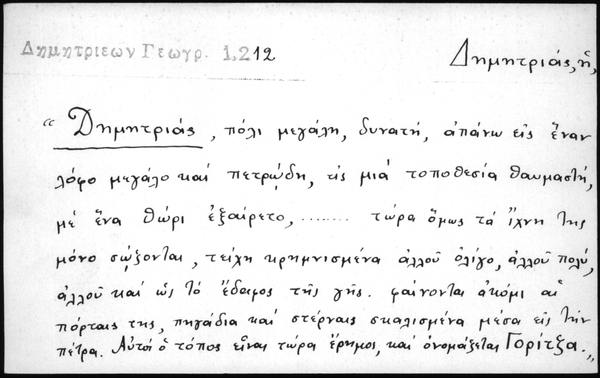 Δημητριεων Γεωγρ. 1,212
Δημητριάς, ἡ,
“ Δημητριάς, πόλι μεγάλη, δυνατή, ἀπάνω εἰς ἕναν
λόφο μεγάλο καὶ πετρῴδη, εἰς μιὰ τοποθεσία θαυμαστή,
μὲ ἕνα θώρι ἐξαίρετο, ........ τώρα ὅμως τὰ ἴχνη της
μόνο σῴζονται, τείχη κρημνισμένα ἀλλοῦ ὀλίγο, ἀλλοῦ πολύ,
ἀλλοῦ καὶ ὡς τὸ ἔδαφος τῆς γῆς. φαίνονται ἀκόμι αἱ
πόρταις της, πηγάδια καὶ στέρναις σκαλισμένα μέσα εἰς τὴν
πέτρα. Αὐτὸ ὁ τόπος εἶναι τώρα ἔρημος, καὶ ὀνομάζεται Γορίτζα. „